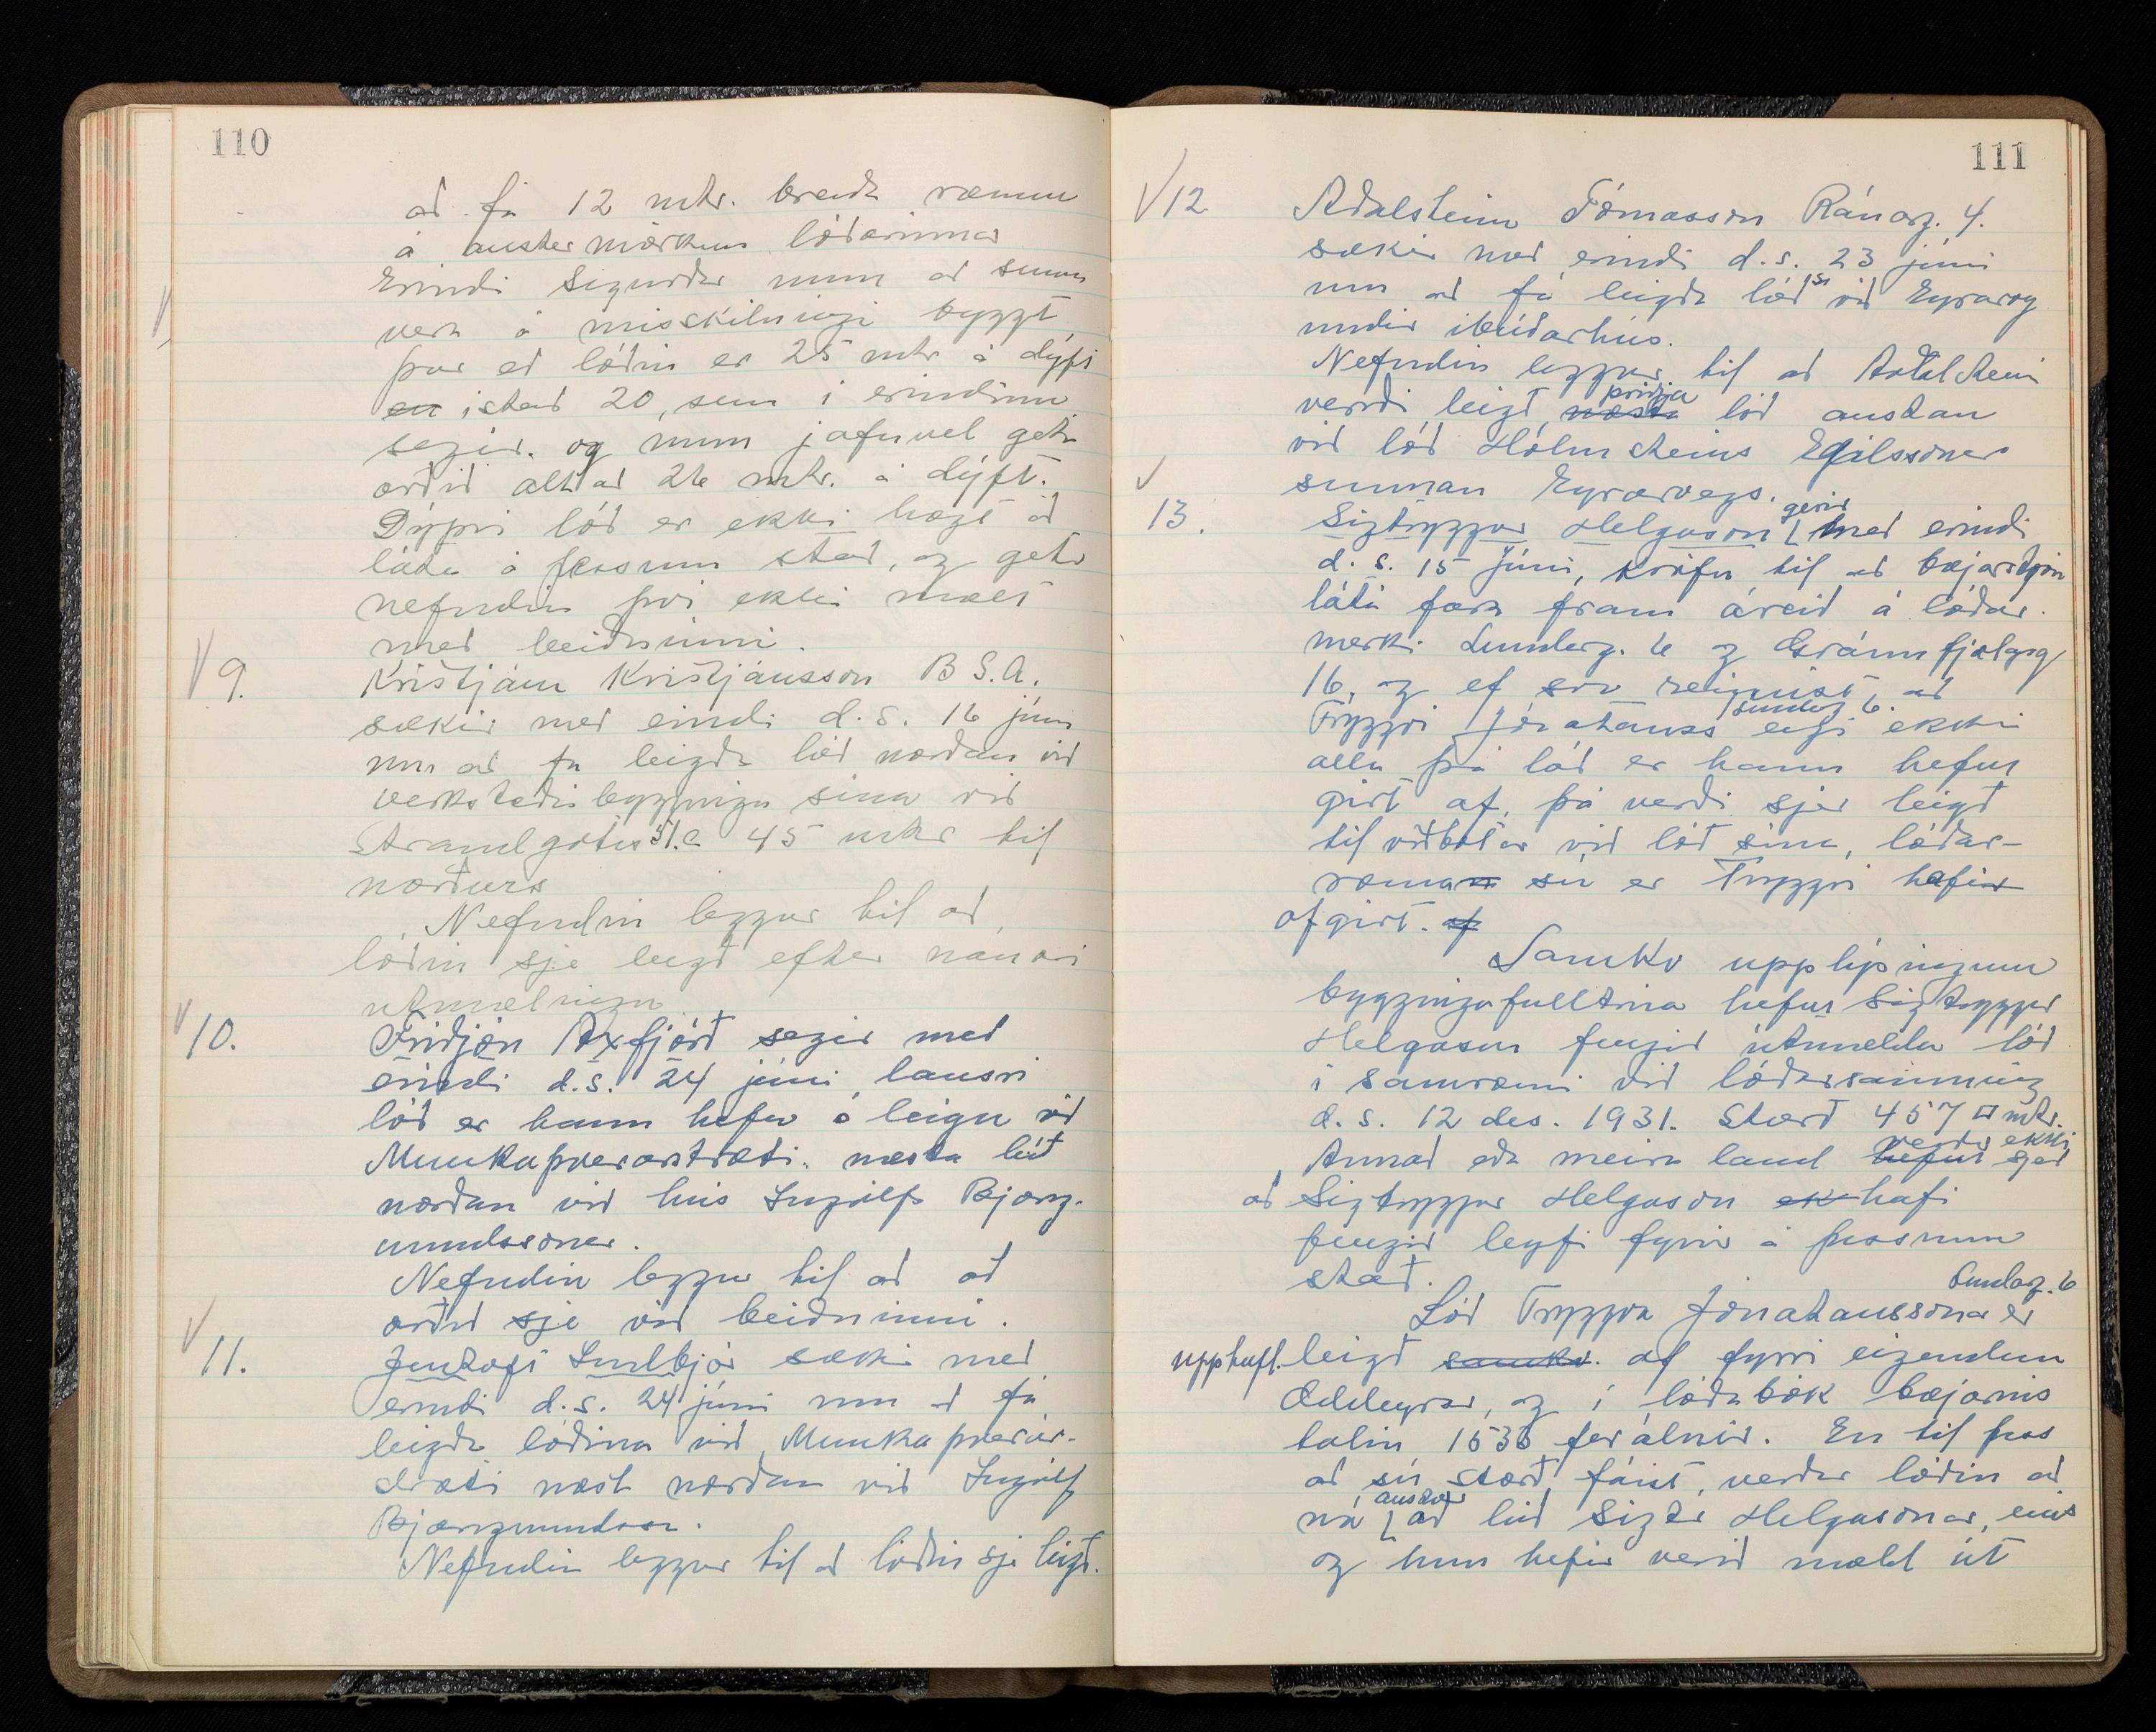 110
að fá 12 mtr. breida ræmu
á austermörkum lóðarinnar
Erindi Sigurðar mun að sumu
vera á misskilningi byggt
þar eð lóðin er 25 mtr á dýpt
en ístað 20, sem í erindinu
segir. og mun jafnvel geta
orðið alt að 26 mtr. á dýpt.
Dýpri lóð er ekki hægt að
láta á þessum stað, og getr
nefndin því ekki mælt
með beiðninni.
9. Kristján Kristjánsson B.S.A.
sækir með eindi d.s. 16 júni
um að fá leigða lóð norðan við
verkstæðisbyggingu sína við
Strandgötu 51. 45 mtr til
norðurs
Nefndin leggur til að
lóðin sje leigð eftir nánari
útmælingu
10. Friðjón Axfjörð segir með
erindi d.s. 24 júni lausri
lóð er hann hefur á leigu við
Munkaþverárstræti. næsta lóð
norðan við hús Ingólfs Bjarg-
mundssonar.
Nefndin leggur til að að
orðið sje við beiðninni.
11. Lundbjör sækir með
erindi d.s. 24 júni um að fá
leigða lóðina við Munkaþverár-
stræti næst norðan við Ingólf
Bjargmundsson.
Nefndin leggur til að lóðin sje leigð.
111
12 Aðalsteinn Tómasson Ránarg. 4.
sækir með erindi d.s. 23 júni
um að fá leigða lóð við Eyrarveg
undir íbúðarhús.
Nefndin leggur til að Aðalsteini
verði leigð, næsta þriðja lóð austan
við lóð Hólmsteins Egilssonar
sunnan Eyrarvegs.
13. Sigtryggur Helgason gerir með erindi
d.s. 15 Júni, kröfu til að bæjarstjórn
láti fara fram áreið á lóðar-
merki Lundarg. 6 og Gránufjelagsg
16, og ef svo reynist, að
Tryggvi Jónatanss Lundarg 6. eigi ekki
alla þá lóð er hann hefur
girt af, þá verði sjer leigð
til viðbótar við lóð sína, lóðar-
ræma sú er Tryggvi hefir
afgirt. af
Samkv upplýsingum
byggingafulltrúa hefur Sigtryggur
Helgason fengið útmælda lóð
í samræmi við lóðarsamning
d.s. 12 des. 1931. Stærð 457 □ mtr.
Annað eða meira land hefur verður ekki sjeð
að Sigtryggur Helgason ek hafi
fengið leyfi fyrir á þessum
stað.
Lóð Tryggva Jónatanssonar Lundarg. 6 er
upphafl. leigð samkv. af fyrri eigendum
Oddeyrar, og í lóðabók bæjarins
talin 1536 feralnir. En til þess
að sú stærð fáist, verður lóðin að
ná austur að lóð Sigtr Helgasonar, eins
og hun hefir verið mæld út